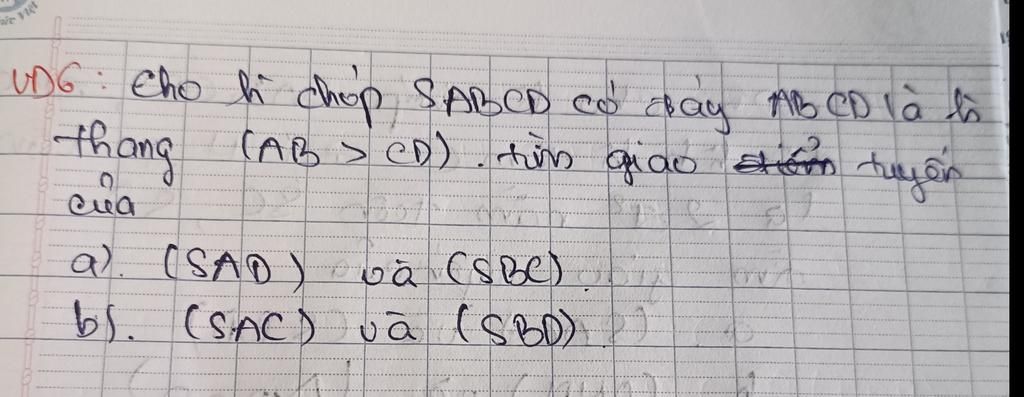 VD6: Cho h chóp SABCD có đáy ABCD là h
thang (AB > CD). tìm giao điểm tuyến
của
a). (SAD) và (SBC).
b). (SAC) và (SBD).